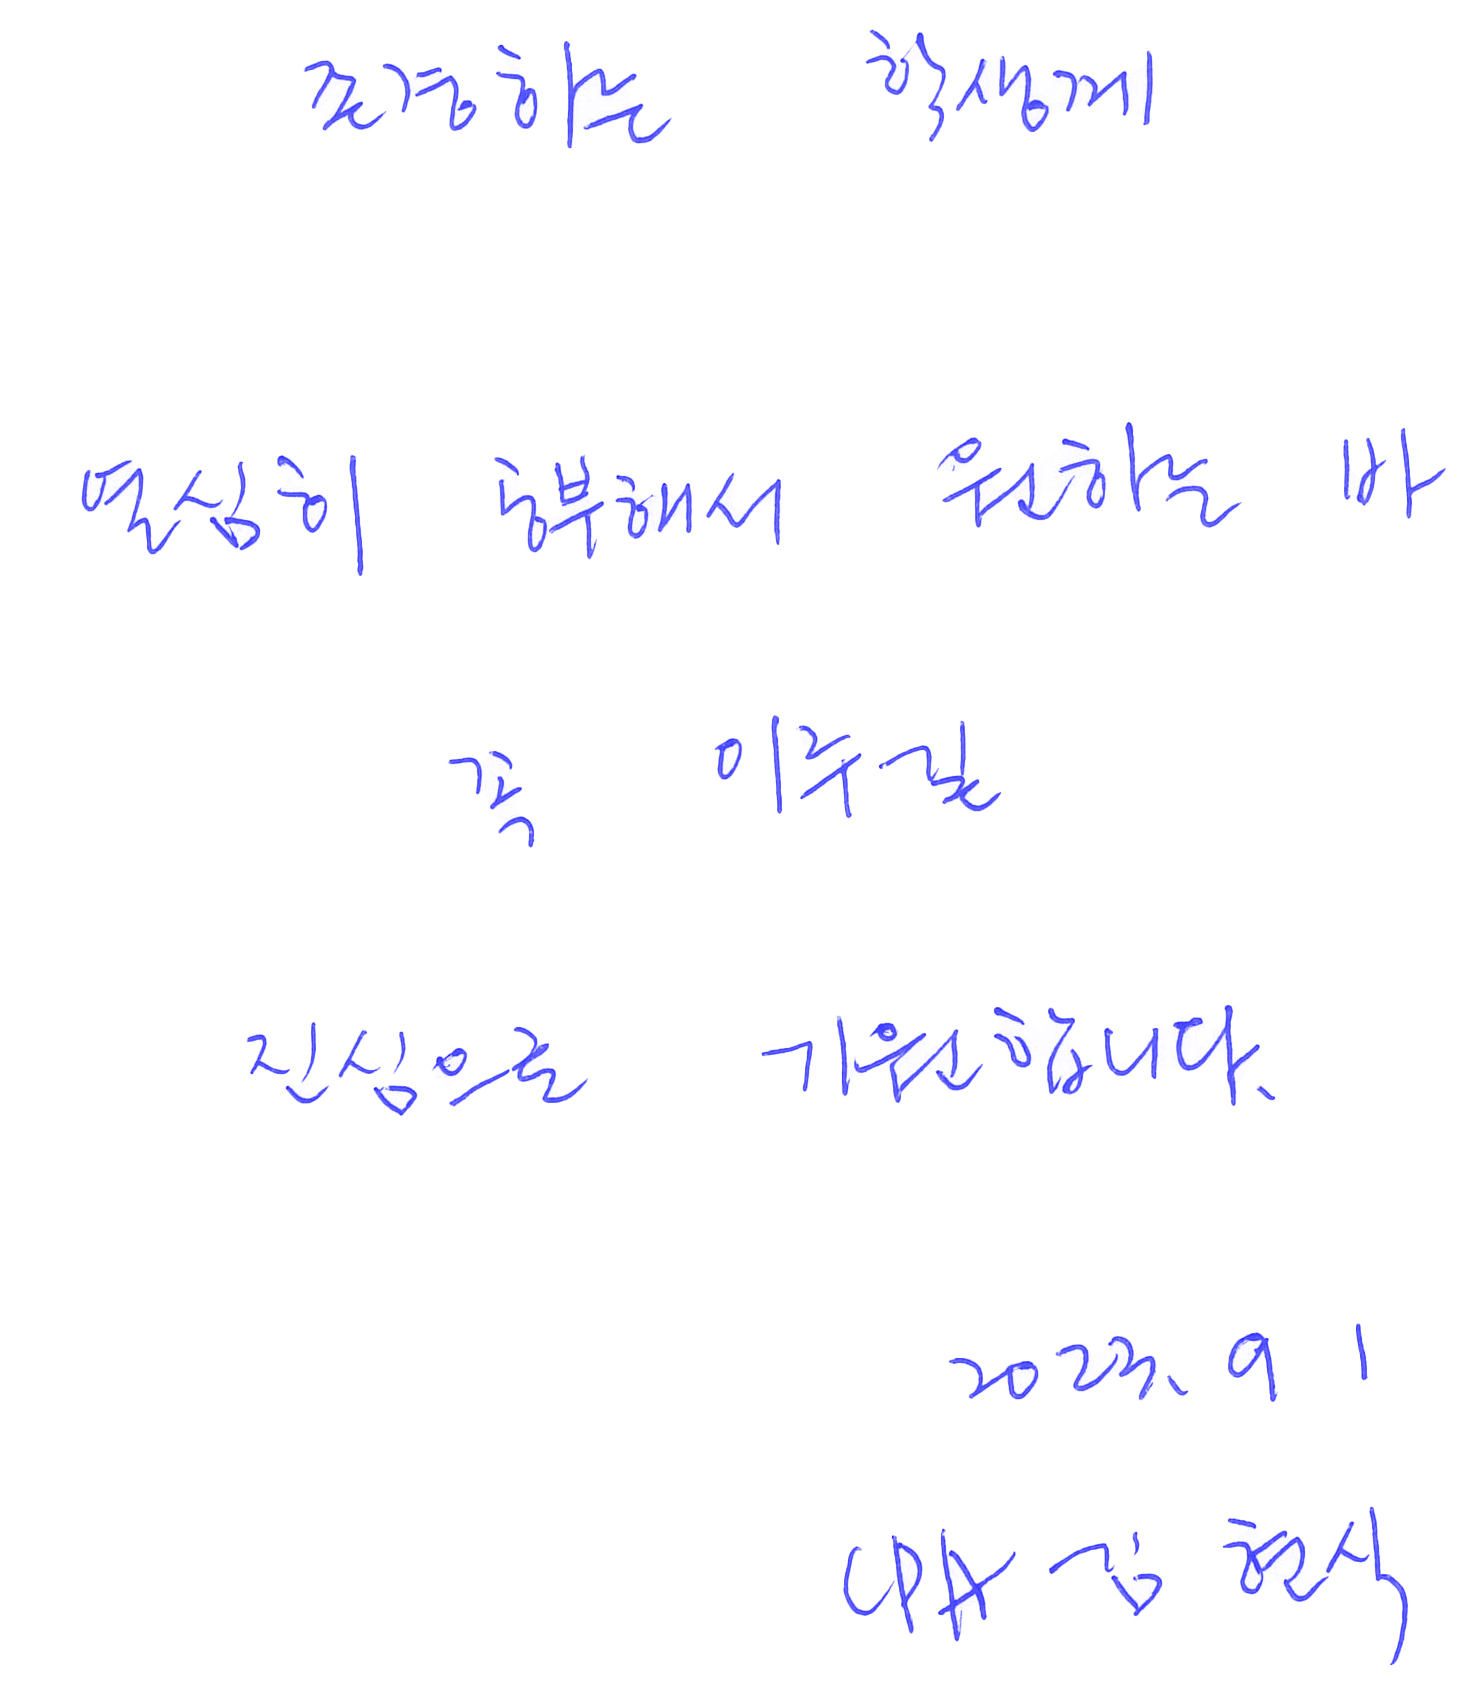 존경하는 학생께
열심히 공부해서 원하는 바
꼭 이루길
진심으로 기원합니다.
2023. 9 1
CPA 김현식